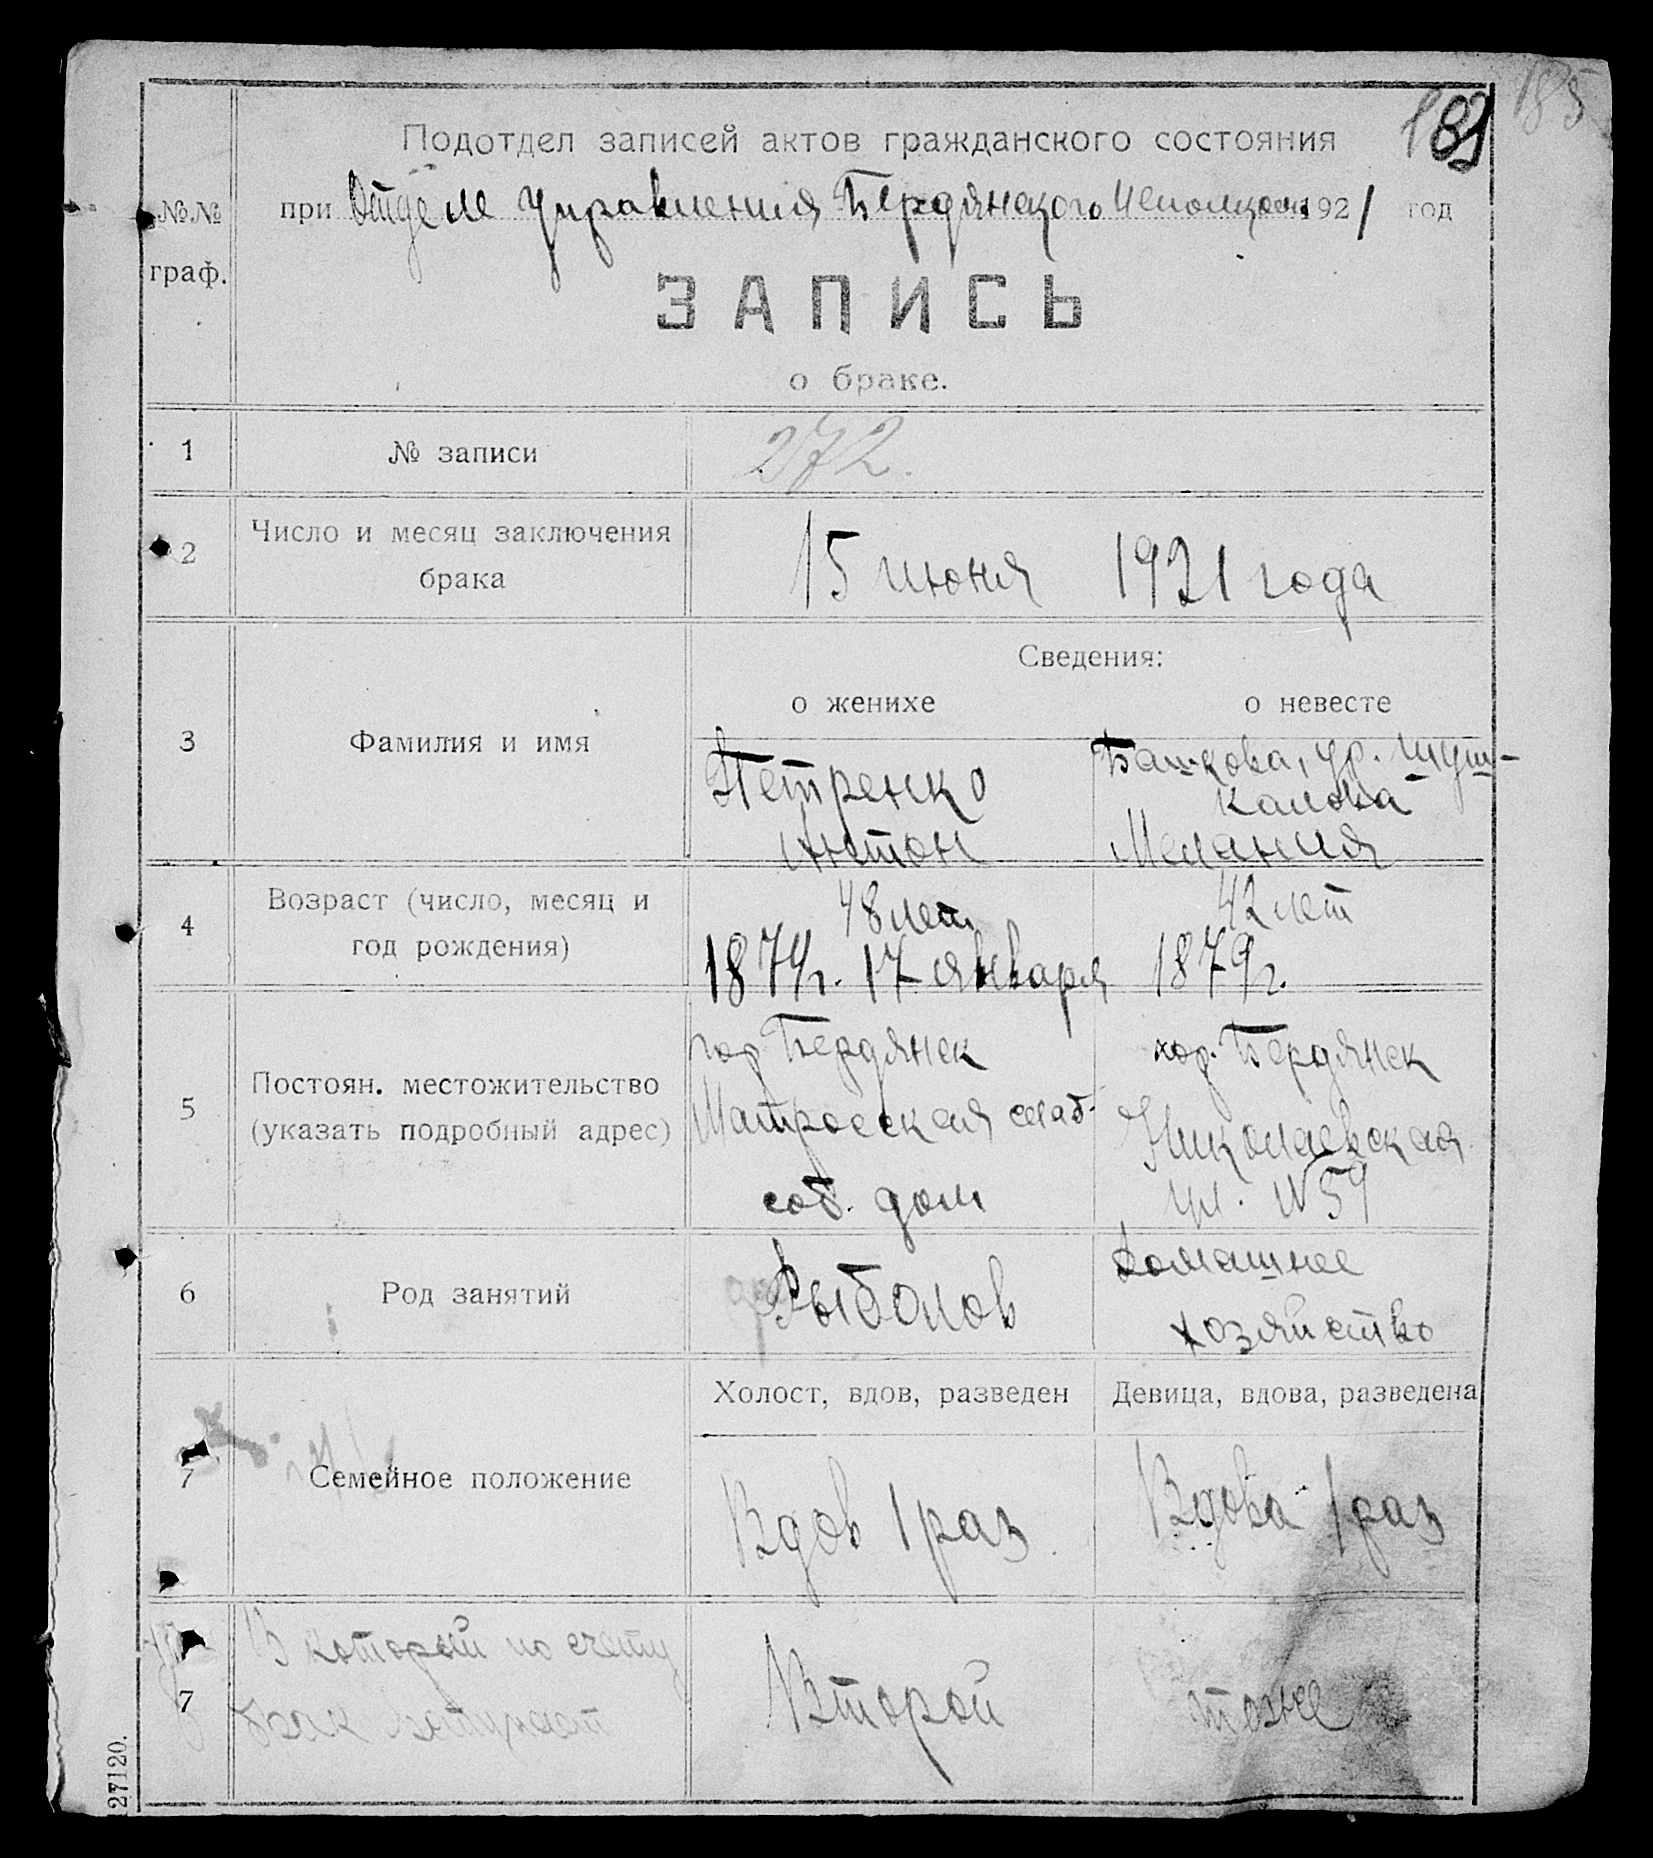 185
183
Подотдел записей актов гражданского состояния
№№ граф.
при Отделе Управления Бердянского Исполком 1921 год
ЗАПИСЬ
о браке.
1 № записи 272.
2 Число и месяц заключения брака 15 июня 1921 года
Сведения:
о женихе о невесте
3 Фамилия и имя
Петренко Антон
Башкова, ур. Шуш-
калова
Мелания
4 Возраст (число, месяц и год рождения)
48 лет
1874г. 17 января
42 лет
1879г.
5 Постоян. местожительство
(указать подробный адрес)
гор Бердянск
Матросская слаб.
соб. дом
гор. Бердянск
Николаевская
ул. N 59
6 Род занятий
Рыболов
Домашнее
хозяйство
Холост, вдов, разведен Девица, вдова, разведена
7 Семейное положение
Вдов 1 раз
Вдова 1 раз
7 В который по счету
брак вступает
Второй
тоже
27120.